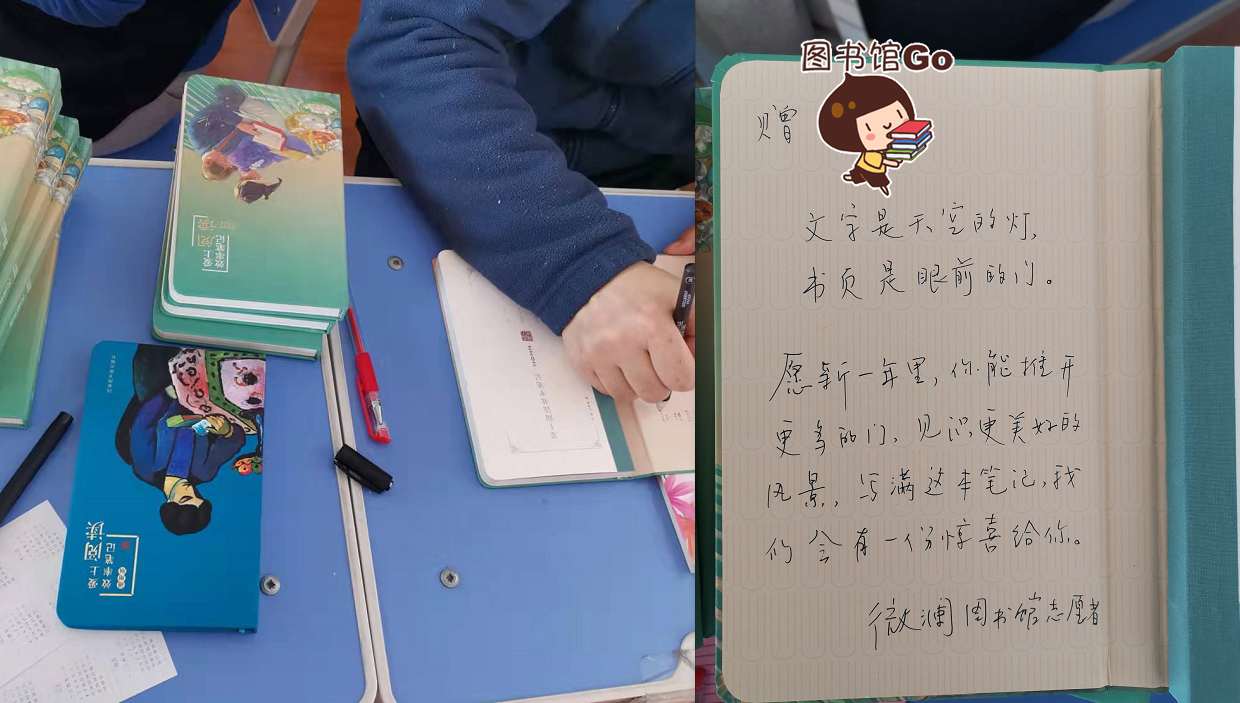 爱上
阅读
效率笔记
爱上
阅读
效率笔记
图书馆Go
赠
文字是天空的灯，
书页是眼前的门。
愿新一年里，你能推开
更多的门，见识更美好的
风景，写满这本笔记，我
们会有一份惊喜给你。
微澜图书馆志愿者